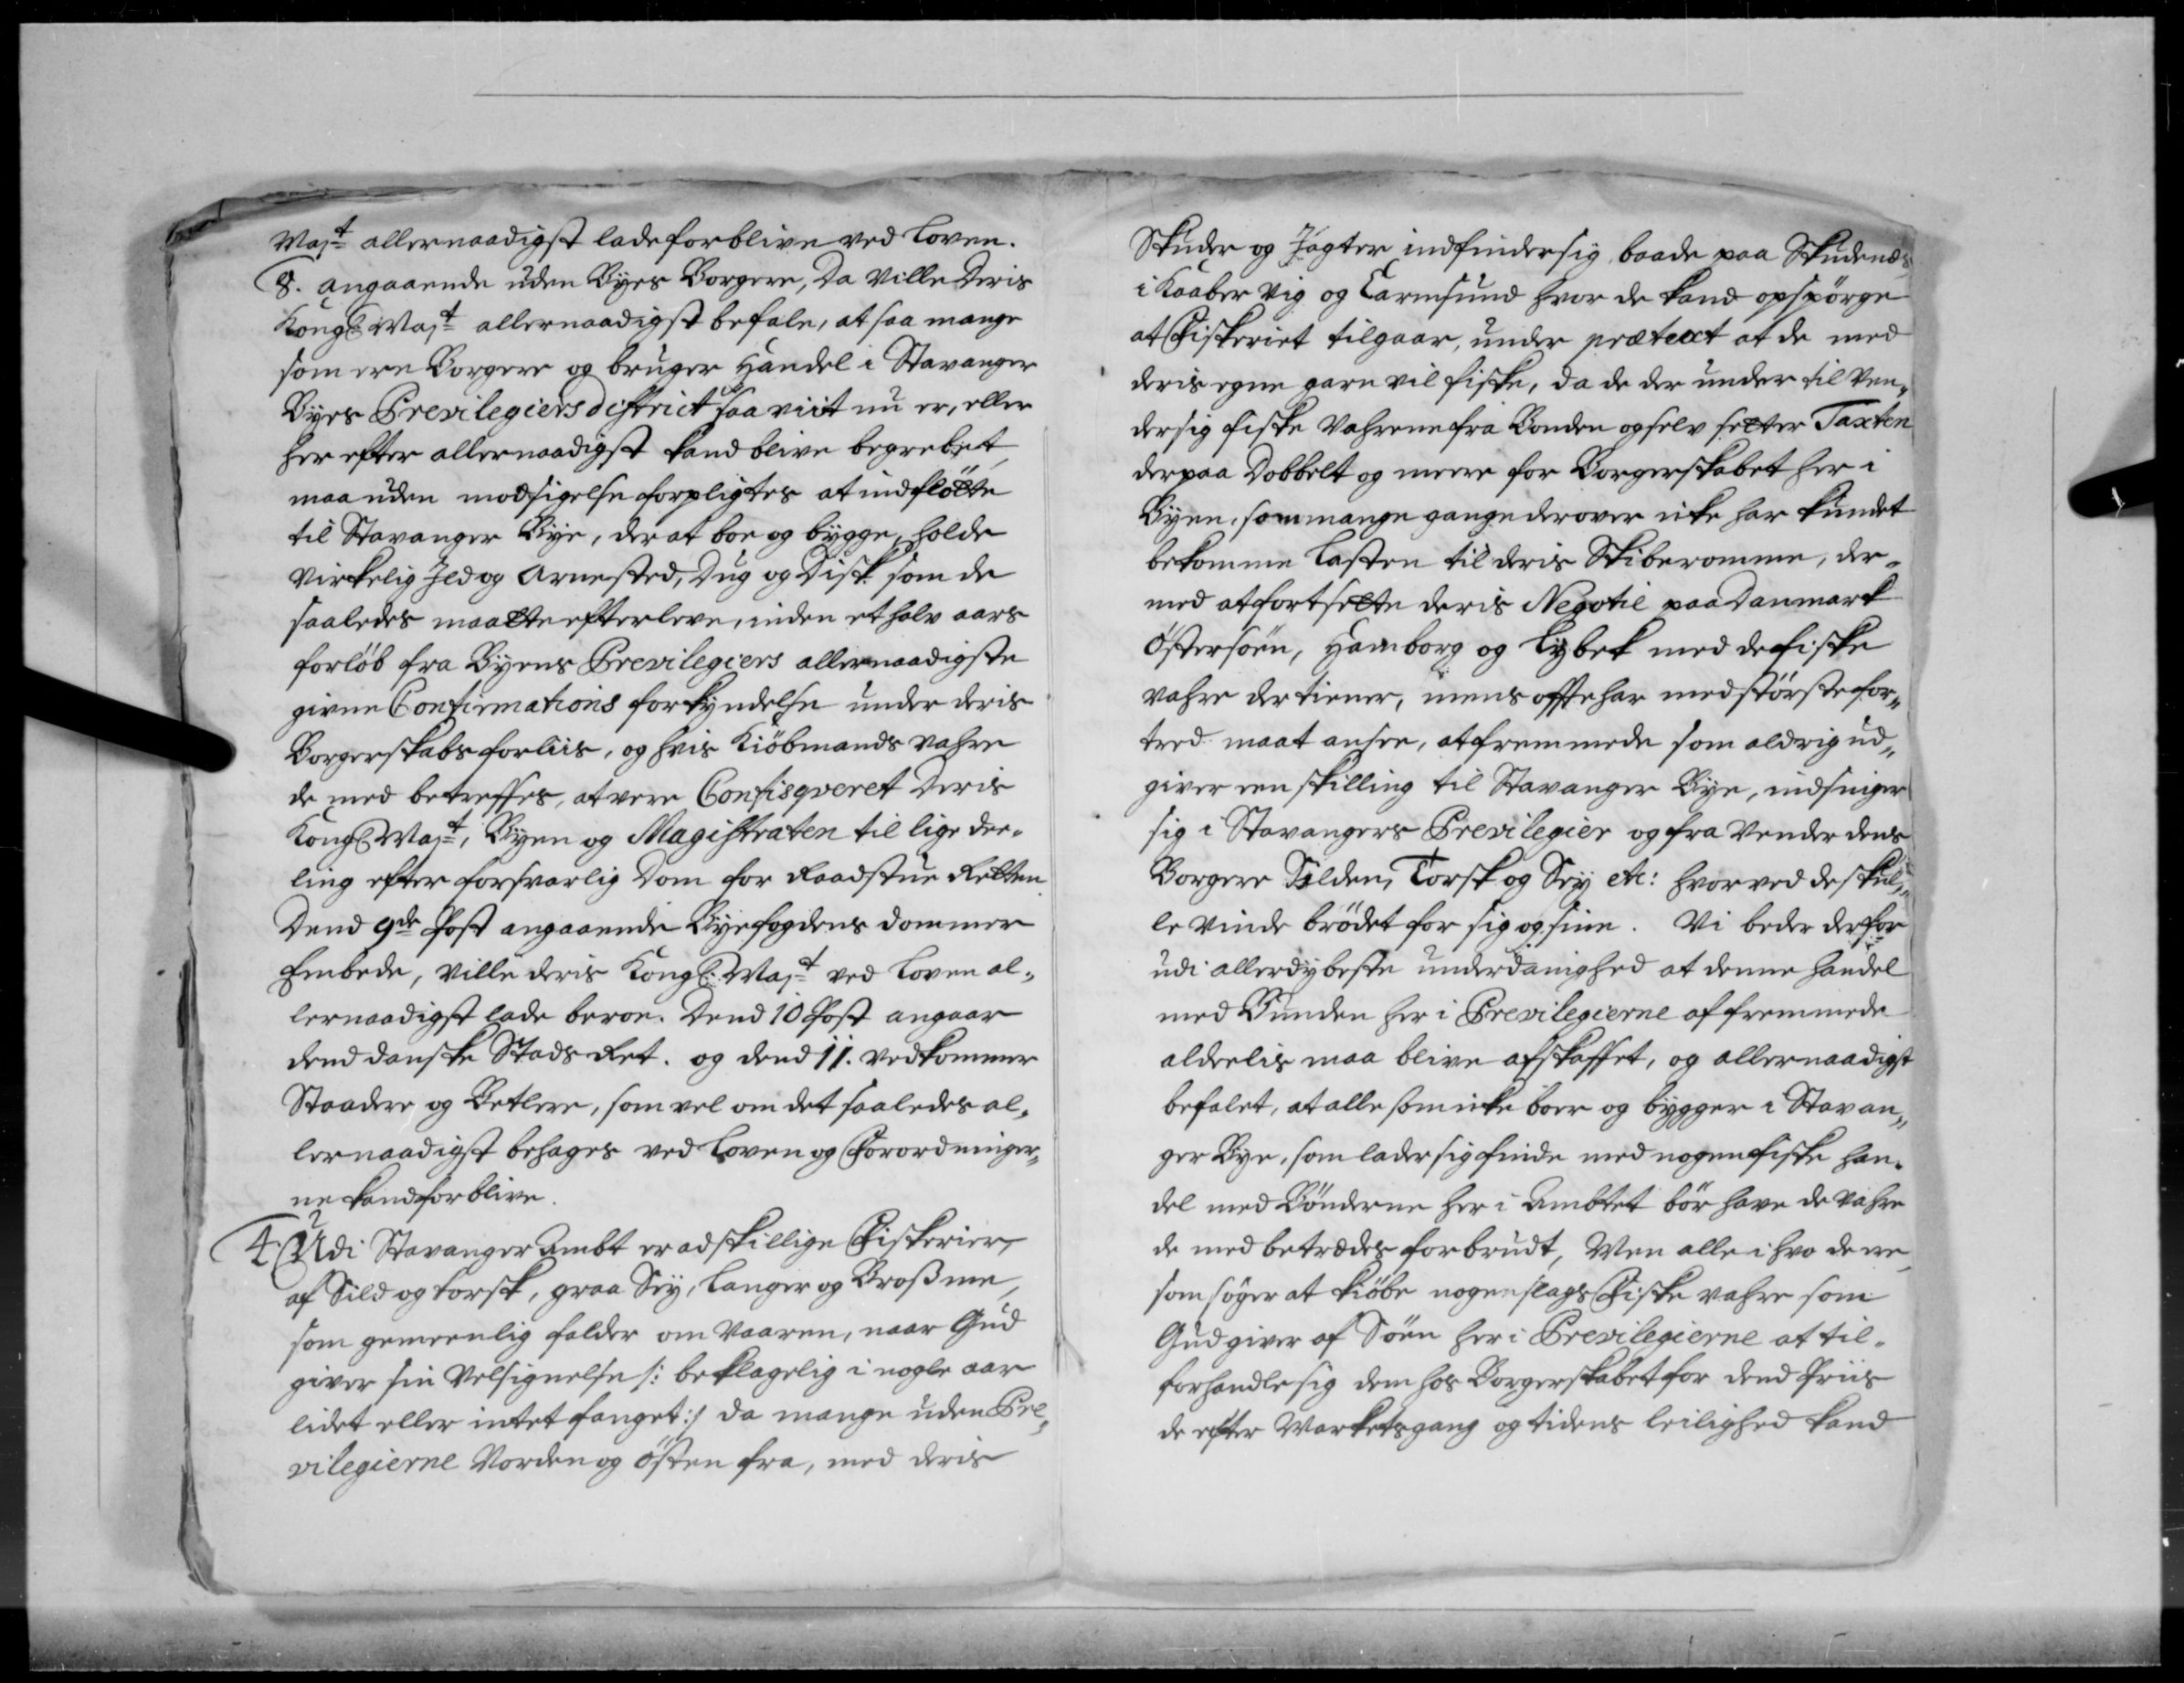 Majt allernaadigst lade forblive ved Loven.
8. angaaende uden Byes Borgere, Da Ville Deris
Kongl: Majt allernaadigst befale, at saa mange
som ere Borgere og bruger Handel i Stavanger
Byes Previlegiers district saa viit nu er, eller
her efter allernaadigst kand blive begrebet
maa uden modsigelse forpligtes at indflötte
til Stavanger Bye, der at boe og bygge, holde
Virkelig Ild og Arnested, Dug og Disk som de
saaledes maatte efterleve, inden et halv aars
forløb fra Byens Previlegiers allernaadigste
givne Confirmations forkyndelse under deris
Borgerskabs forliis, og hvis Kiöbmands Vahre
de med betreffes, at vere Confisqveret Deris
Kongl: Majt, Byen og Magistraten til lige dee-
ling efter forsvarlig Dom for Raadstue Retten
Dend 9de Post angaaende Byefogdens Dommer
Embede, Ville deris Kongl: Majt ved Loven al-
lernaadigst lade beroe. Dend 10 Post angaar
dend danske Stads Ret. og dend 11. vedkommer
Staadere og Betlere, som vel om det saaledes al-
lernaadigst behages ved Loven og Forordninger-
ne kand forblive.
4. Udi Stavanger Ambt er adskillige Fiskerier,
af Sild og torsk, graa Sey, Langer og Brossme,
som gemeenlig falder om Vaaren, naar Gud
giver sin Velsignelse /: beklagelig i nogle aar
lidet eller intet fanget :/ da mange uden Pre-
vilegierne Norden og Östen fra, med deris
Skuder og Jagter indfinder sig baade paa Skudenæs
i Kaaber Vig og Carmsund hvor de kand opspörge
at Fiskeriet tilgaar, under prætext at de med
deris egne garn vil fiske, da de der under til Ven-
der sig fiske Vahrene fra Bonden og selv setter Taxten
derpaa Dobbelt og meere for Borgerskabet her i
Byen, som mange gange derover icke har kundet
bekomme Lasten til deris Skiberomme, der-
med at fortsette deris Negotie paa Danmark
Östersöen, Hamborg og Lybek med de fiske
vahre der tiener, mens offte har med störste for-
tred maat ansee, at fremmede som aldrig ud-
giver een skilling til Stavanger Bye, indsniger
sig i Stavangers Previlegier og fra Vender dens
Borgere Silden, Torsk og Sey etc: hvorved de skul-
le Vinde brödet for sig og sine. Vi beder derfor
udi allerdybeste underdanighed at denne handel
med Bunden her i Previlegierne af fremmede
alderlis maa blive afskaffet, og allernaadigst
befalet, at alle som icke boer og bygger i Stavan-
ger Bye, som lader sig finde med nogen fiske han-
del med Bönderne her i Ambtet bör have de Vahre
de med betrædes forbrudt, Men alle i hvo de ere
som söger at kiöbe nogen slags Fiske vahre som
Gud giver af Söen her i Previlegierne at til-
forhandle sig dem hos Borgerskabet for dend Priis
de efter Markets gang og tidens leilighed kand